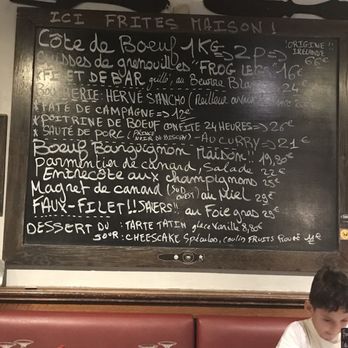 ICI FRITES MAISON!
CÔTE DE BOEUF 1KG => 2P => ORIGINE!! IRELANDE 66€
CUISSES DE GRENOUILLES "FROG LEGS" 16€
FILET DE BAR grillé, au Beurre 24
BOUCHERIE: HERVÉ SANCHO (Meilleur
*PATÉ DE CAMPAGNE => 12€
*POITRINE DE BOEUF CONFITE 24 HEURES => 26€
*SAUTÉ DE PORC (NOIR DE BIGORRE) - AU CURRY => 21€
BOEUF BOURGUIGNON MAISON!! 19,80€
PARMENTIER DE CANARD, SALADE 22€
ENTRECÔTE AUX CHAMPIGNONS 25€
MAGRET DE CANARD (SUD OUEST) AU MIEL 29€
FAUX-FILET!! SALERS!! au Foie gras 29€
DESSERT DU JOUR: TARTE TATIN glace Vanille 8,80€
CHEESCAKE Spéculos, coulis FRUITS ROUGE 11€